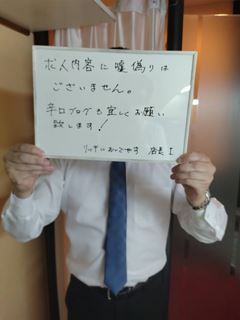 求人内容に嘘偽りは
ございません。
辛口ブログも宜しくお願い
致します!
リッチにおいでやす 店長 I